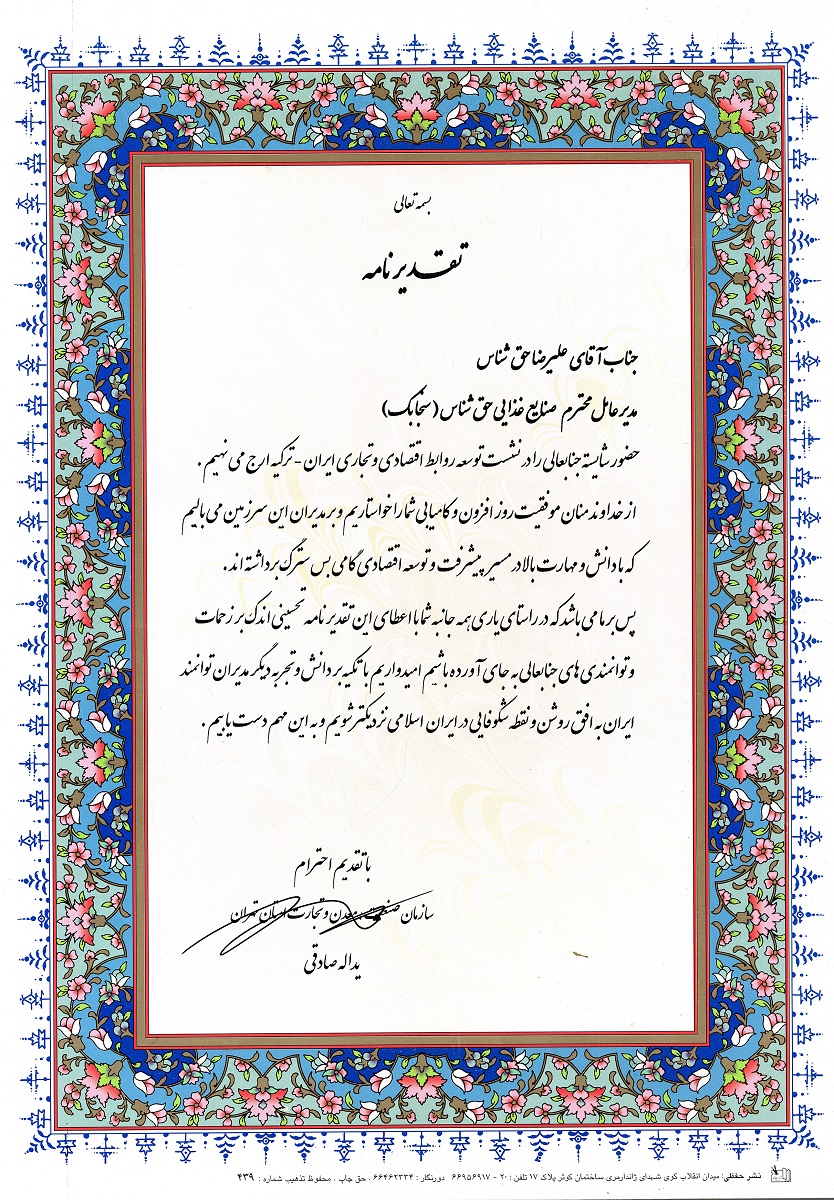 بسمه تعالی
تقدیرنامه
جناب آقای علیرضا حق شناس
مدیر عامل محترم صنایع غذایی حق شناس (سنجابک)
حضور شایسته جنابعالی را در نشست توسعه روابط اقتصادی و تجاری ایران - ترکیه ارج می نهیم .
از خداوند منان موفقیت روز افزون و کامیابی شما را خواستاریم و بر مدیران این سرزمین می بالیم
که با دانش و مهارت بالا در مسیر پیشرفت و توسعه اقتصادی گامی بس سترگ برداشته اند .
پس بر ما می باشد که در راستای یاری همه جانبه شما با اعطای این تقدیر نامه تحسینی اندک بر زحمات
و توانمندی های جنابعالی به جای آورده باشیم امیدواریم با تکیه بر دانش و تجربه دیگر مدیران توانمند
ایران به افق روشن و نقطه شکوفایی در ایران اسلامی نزدیکتر شویم و به این مهم دست یابیم .
با تقدیم احترام
سازمان صنعت، معدن و تجارت استان تهران
یداله صادقی
نشر حفظی: میدان انقلاب کوی شهدای ژاندارمری ساختمان کوش پلاک ۱۷ تلفن : ۲۰ - ۶۶۹۵۶۹۱۷ دورنگار : ۶۶۴۶۲۳۳۴ ، حق چاپ ، محفوظ تذهیب شماره : ۴۳۹